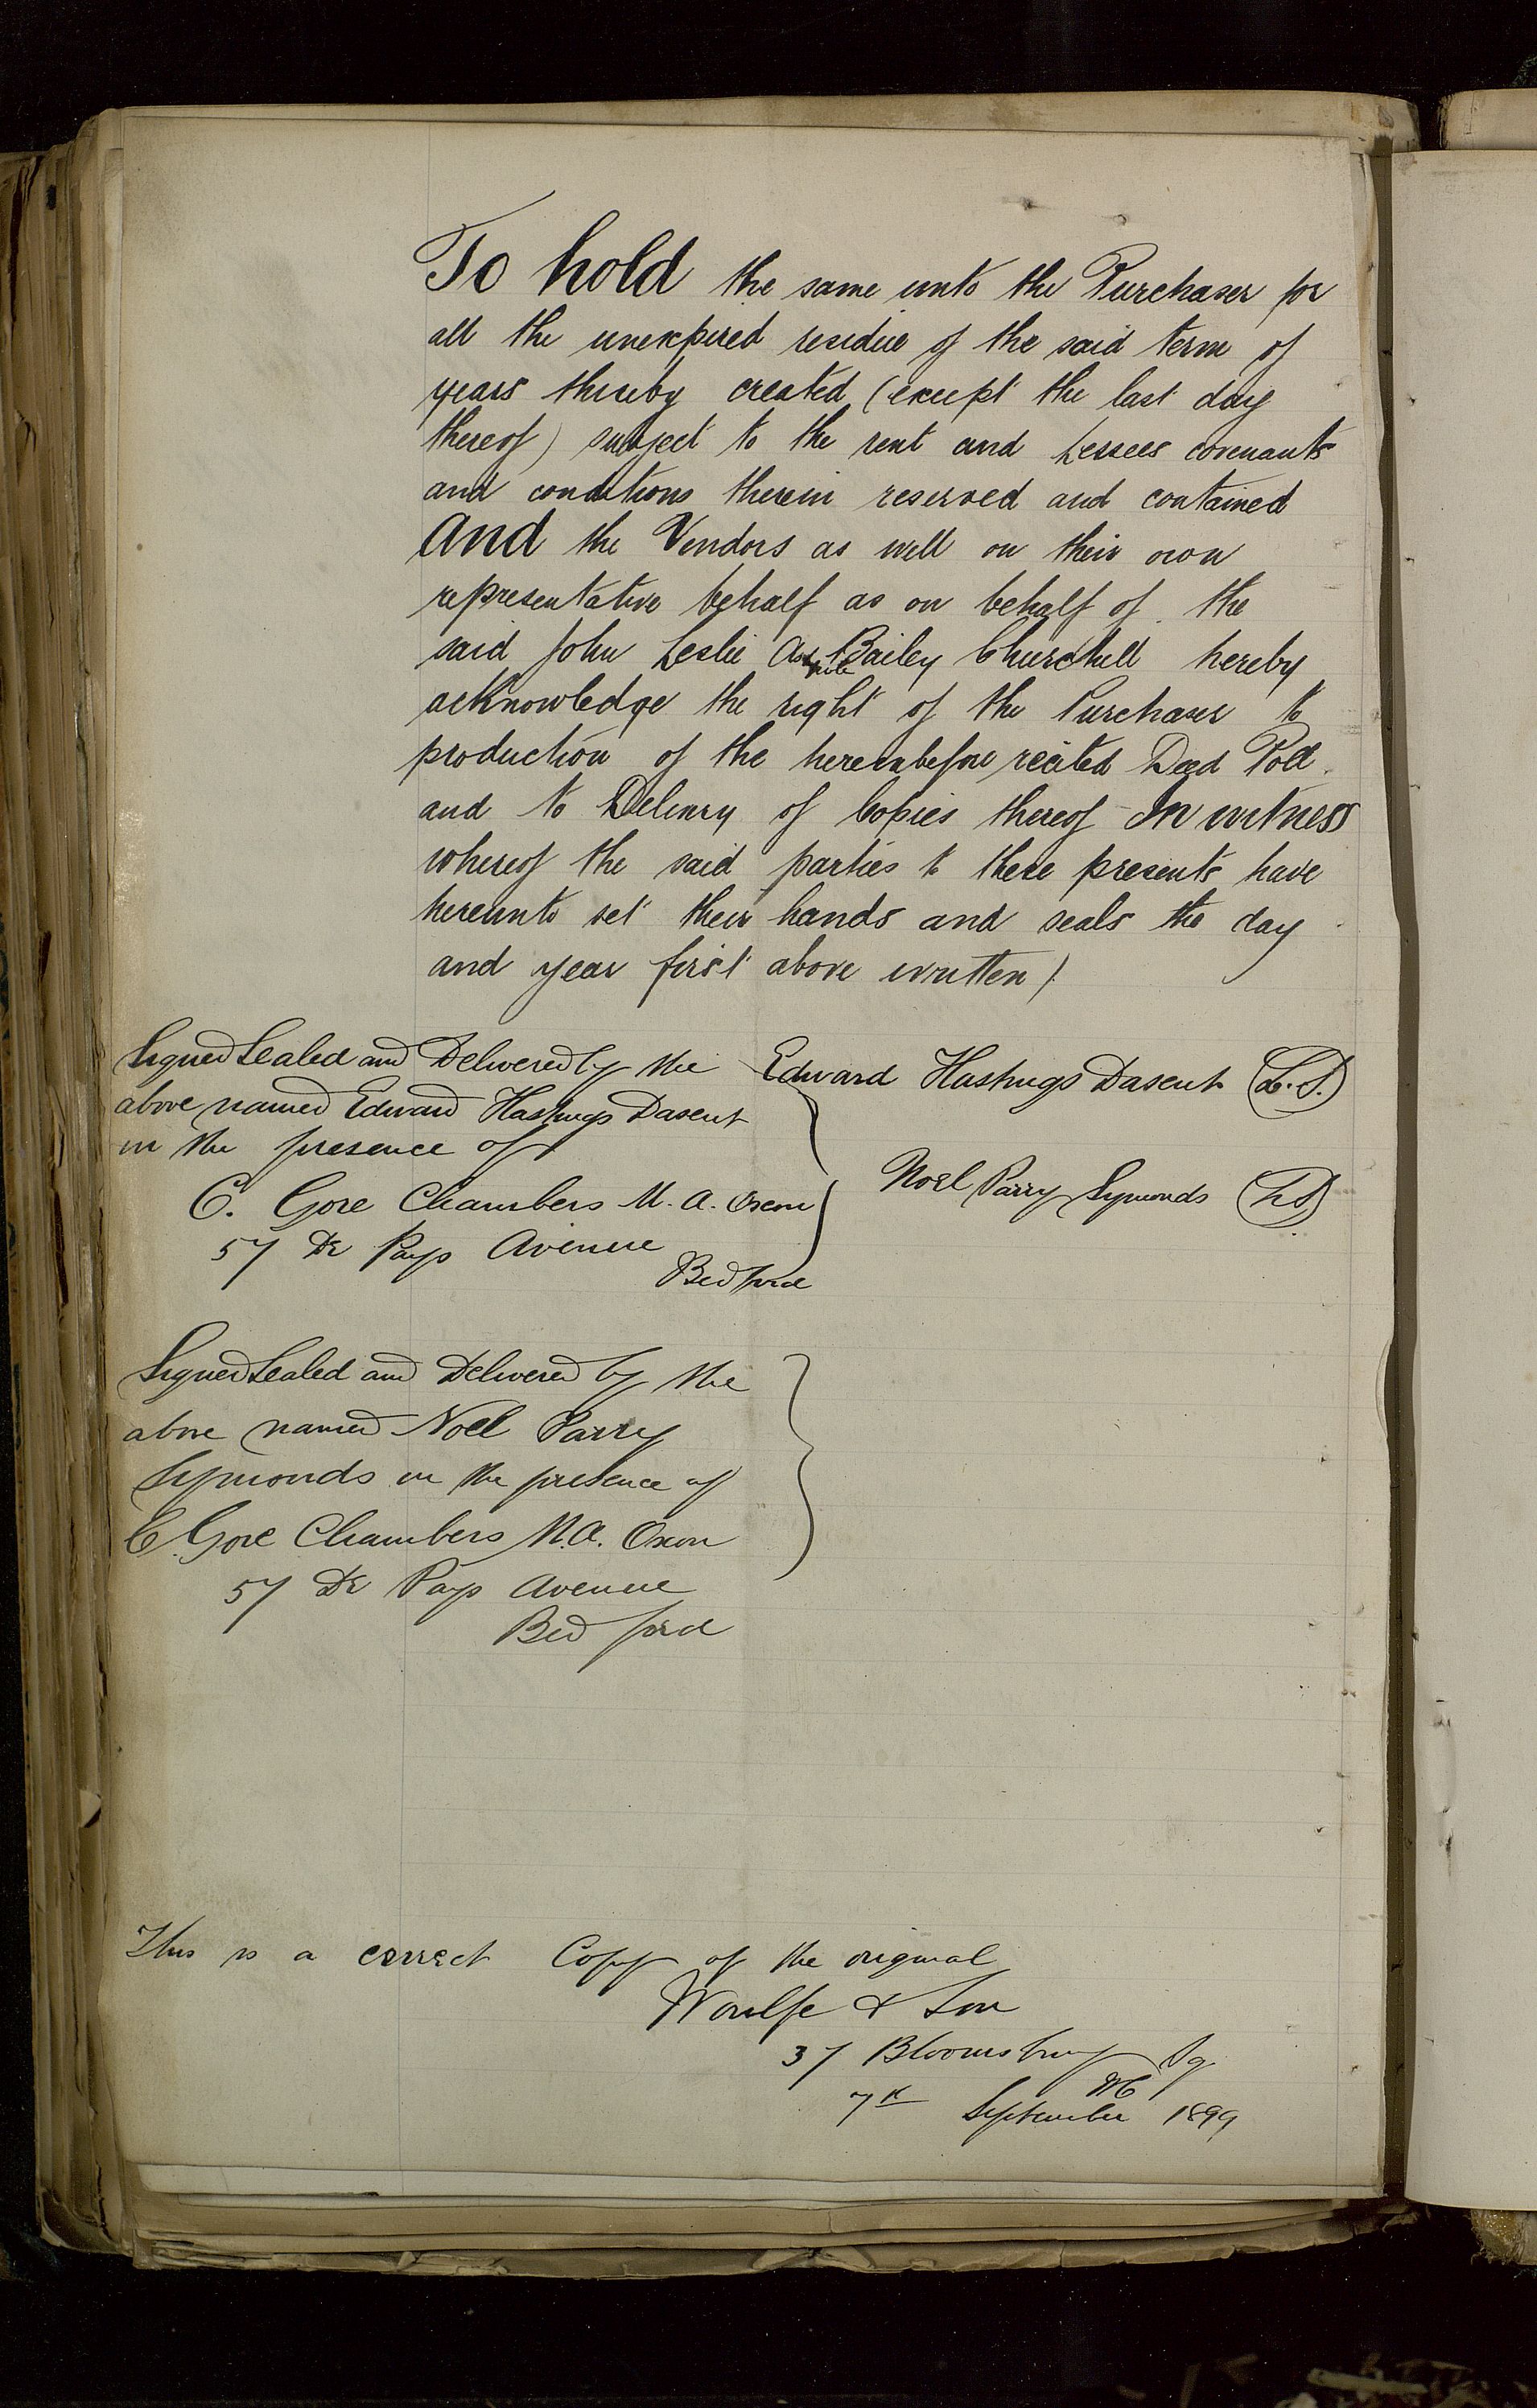 To hold the same unto the Purchaser for
all the unexpired residue of the said term of
years thereby created (except the last day
thereof) subject to the rent and Lessees covenants
and conditions therein reserved and contained
And the Vendors as well on their own
representative behalf as on behalf of the
said John Leslie Bailey Churchill hereby
acknowledge the right of the Purchaser to
production of the hereinbefore recited Deed Poll
and to Delivery of Copies thereof In witness
whereof the said parties to these presents have
hereunto set their hands and seals the day
and year first above written /.
Signed Sealed and Delivered by the
above named Edward Hastings Dasent
in the presence of
C. Gore Chambers M.A. Oxon
57 De Parys Avenue
Bedford
Edward Hastings Dasent (L.S.)
Noel Parry Symonds (LS)
Signed Sealed and Delivered by the
above named Noel Parry
Symonds in the presence of
C Gore Chambers M.A. Oxon
57 De Parys Avenue
Bedford
This is a correct Copy of the original
Woulfe & Son
37 Bloomsbury Sq
WC
7th September 1899